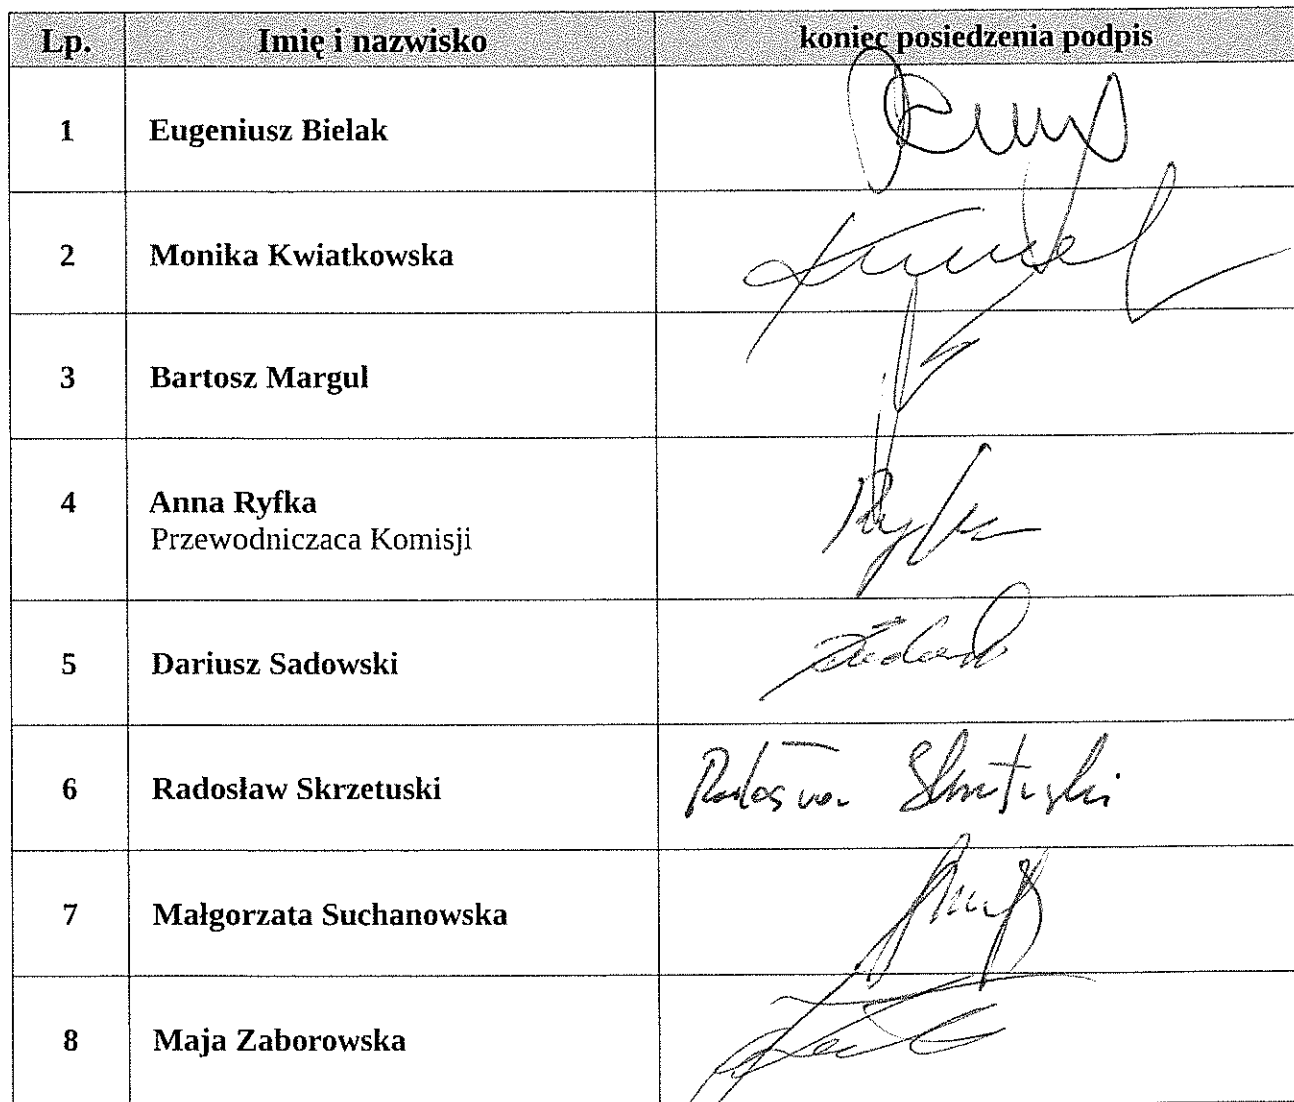 Lp. Imię i nazwisko koniec posiedzenia podpis
1 Eugeniusz Bielak
2 Monika Kwiatkowska
3 Bartosz Margul
4 Anna Ryfka Ryfka
Przewodniczaca Komisji
5 Dariusz Sadowski
6 Radosław Skrzetuski Radosław Skrzetuski
7 Małgorzata Suchanowska
8 Maja Zaborowska